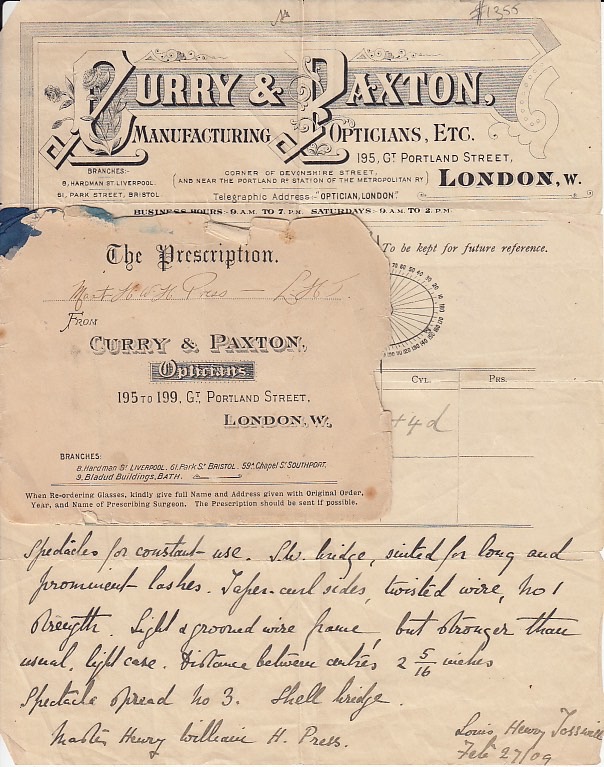 #1355
CURRY & PAXTON,
MANUFACTURING OPTICIANS, ETC.
195, GT PORTLAND STREET,
BRANCHES:-
8, HARDMAN ST LIVERPOOL.
61, PARK STREET, BRISTOL
CORNER OF DEVONSHIRE STREET,
(AND NEAR THE PORTLAND RD STATION OF THE METROPOLITAN RY)
LONDON, W.
Telegraphic Address:- "OPTICIAN, LONDON"
BUSINESS HOURS: 9 A.M. TO 7 P.M. SATURDAYS: 9 A.M. TO 2 P.M.
To be kept for future reference.
The Prescription.
Mast H W H Press — L H T.
FROM
CURRY & PAXTON,
Opticians
195 TO 199, GT PORTLAND STREET,
LONDON, W.
BRANCHES:
8, Hardman St LIVERPOOL. 61, Park St BRISTOL. 59A Chapel St SOUTHPORT.
9, Bladud Buildings, BATH.
When Re-ordering Glasses, kindly give full Name and Address given with Original Order,
Year, and Name of Prescribing Surgeon. The Prescription should be sent if possible.
CYL. PRS.
+4d
Spectacles for constant use. S.W. bridge, suited for long and
prominent lashes. Taper-curl sides, twisted wire, No 1
strength. Light grooved wire frame, but stronger than
usual, light case. Distance between centres 2 5/16 inches
Spectacle spread No 3. Shell bridge.
Master Henry William H. Press.
Louis Henry
Feb 27/09